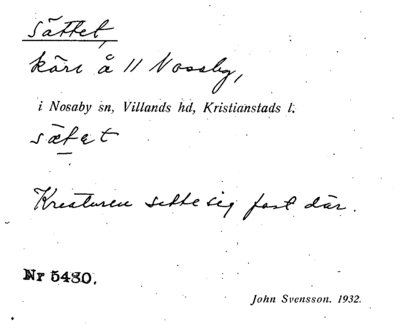 sättet,
kärr å 11 Nosaby,
i Nosaby sn, Villands hd, Kristianstads l.
sätət
Kreaturen sette sig fast där.
Nr 5480.
John Svensson. 1932.